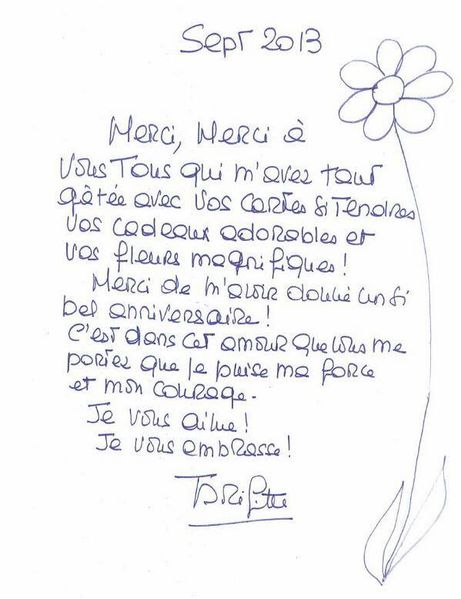 Sept 2013
Merci, Merci à
vous Tous qui m'avez tant
gâtée avec vos cartes si Tendres
vos cadeaux adorables et
vos fleurs magnifiques !
Merci de m'avoir donné un si
bel anniversaire !
C'est dans cet amour que vous me
portez que je puise ma force
et mon courage.
Je vous aime !
Je vous embrasse !
Brigitte